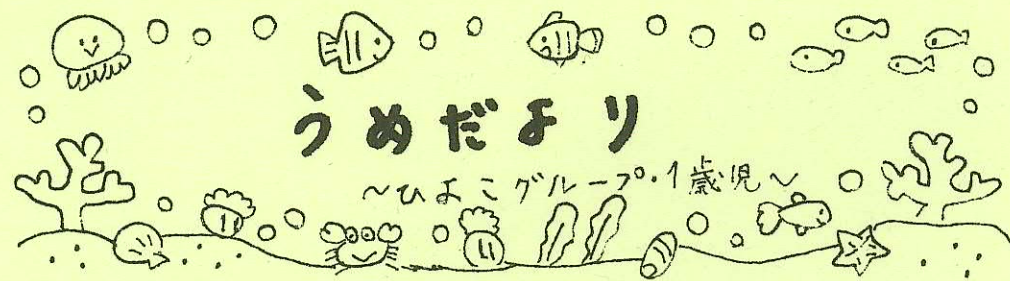 うめだより
~ひよこグループ・1歳児~